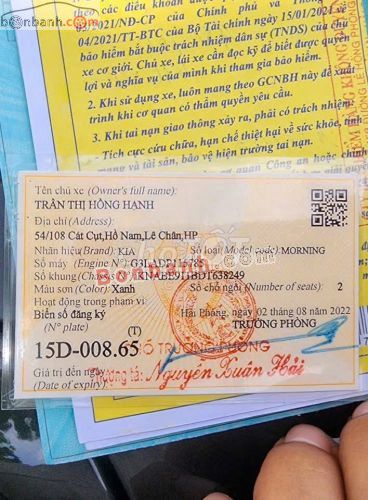 bonbanh.com
theo các điều khoản được
03/2021/NĐ-CP của Chính phủ và Thông
04/2021/TT-BTC của Bộ Tài chính ngày 15/01/2021 về
bảo hiểm bắt buộc trách nhiệm dân sự (TNDS) của chủ
xe cơ giới. Chủ xe, lái xe cần đọc kỹ để biết được quyền
lợi và nghĩa vụ của mình khi tham gia bảo hiểm.
2. Khi sử dụng xe, luôn mang theo GCNBH này để xuất
trình khi cơ quan có thẩm quyền yêu cầu.
3. Khi tai nạn giao thông xảy ra, phải có trách nhiệm:
- Tích cực cứu chữa, hạn chế thiệt hại về sức khỏe, tính
mạng và tài sản, bảo vệ hiện trường tai nạn.
cơ quan Công an hoặc chính
Tên chủ xe (Owner's full name):
TRẦN THỊ HỒNG HẠNH
Địa chỉ (Address):
54/108 Cát Cụt,Hồ Nam,Lê Chân,HP
Nhãn hiệu(Brand): KIA Số loại(Model code): MORNING
Số máy (Engine N°):
Số khung (Chassis N°):
Màu sơn (Color): Xanh Số chỗ ngồi (Number of seats): 2
Hoạt động trong phạm vi:
Biển số đăng ký Hải Phòng, ngày 02 tháng 08 năm 2022
(N° plate) TRƯỞNG PHÒNG
(T)
15D-008.65 PHÓ TRƯỞNG PHÒNG
Giá trị đến ngày
(Date of expiry): Thượng tá: Nguyễn Xuân Hải
Bonbanh.com